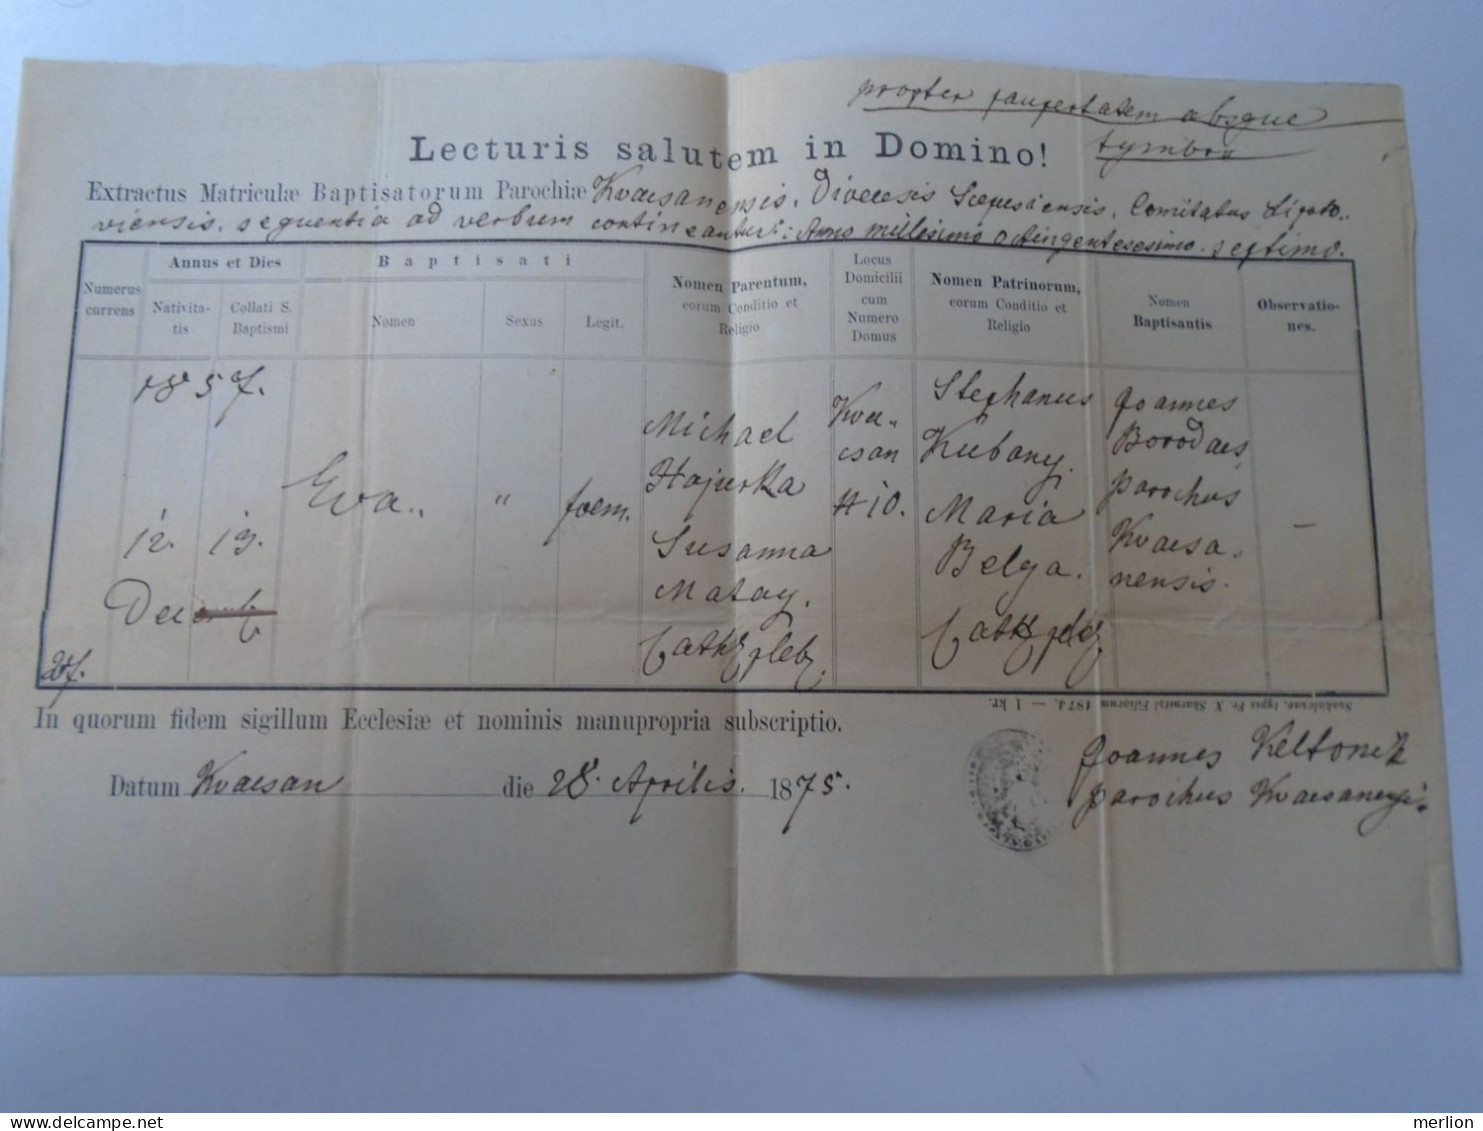 propter paupertatem absque
tymbro
Lecturis salutem in Domino!
Extractus Matriculæ Baptisatorum Parochiæ Kvacsanensis, Diocecesis Scepusiensis, Comitatus Lipto-
viensis, sequentia ad verbum contineantur: Anno millesimo octingentesimo septimo.
Numerus currens
Annus et Dies
Nativita-tis
Collati S. Baptismi
Baptisati
Nomen
Sexus
Legit.
Nomen Parentum, eorum Conditio et Religio
Locus Domicilii cum Numero Domus
Nomen Patrinorum, eorum Conditio et Religio
Nomen Baptisantis
Observatio-nes.
1857.
12. 13.
Decemb
27.
Eva „
"
foem.
Michael
Hajurka
Susanna
Matay.
Cath. pleb.
Kva-
csan
#10.
Stephanus
Kubany.
Maria
Belga.
Cath. pleb.
Joannes
Borodacs
parochus
Kvacsa-
nensis.
–
Szakolczae, typis Fr. X. Škarnitzl Filiorum 1874. — 1 kr.
In quorum fidem sigillum Ecclesiæ et nominis manupropria subscriptio.
Datum Kvacsan die 28. Aprilis. 1875.
Joannes Keltonek
parochus Kvacsanensis
merlion